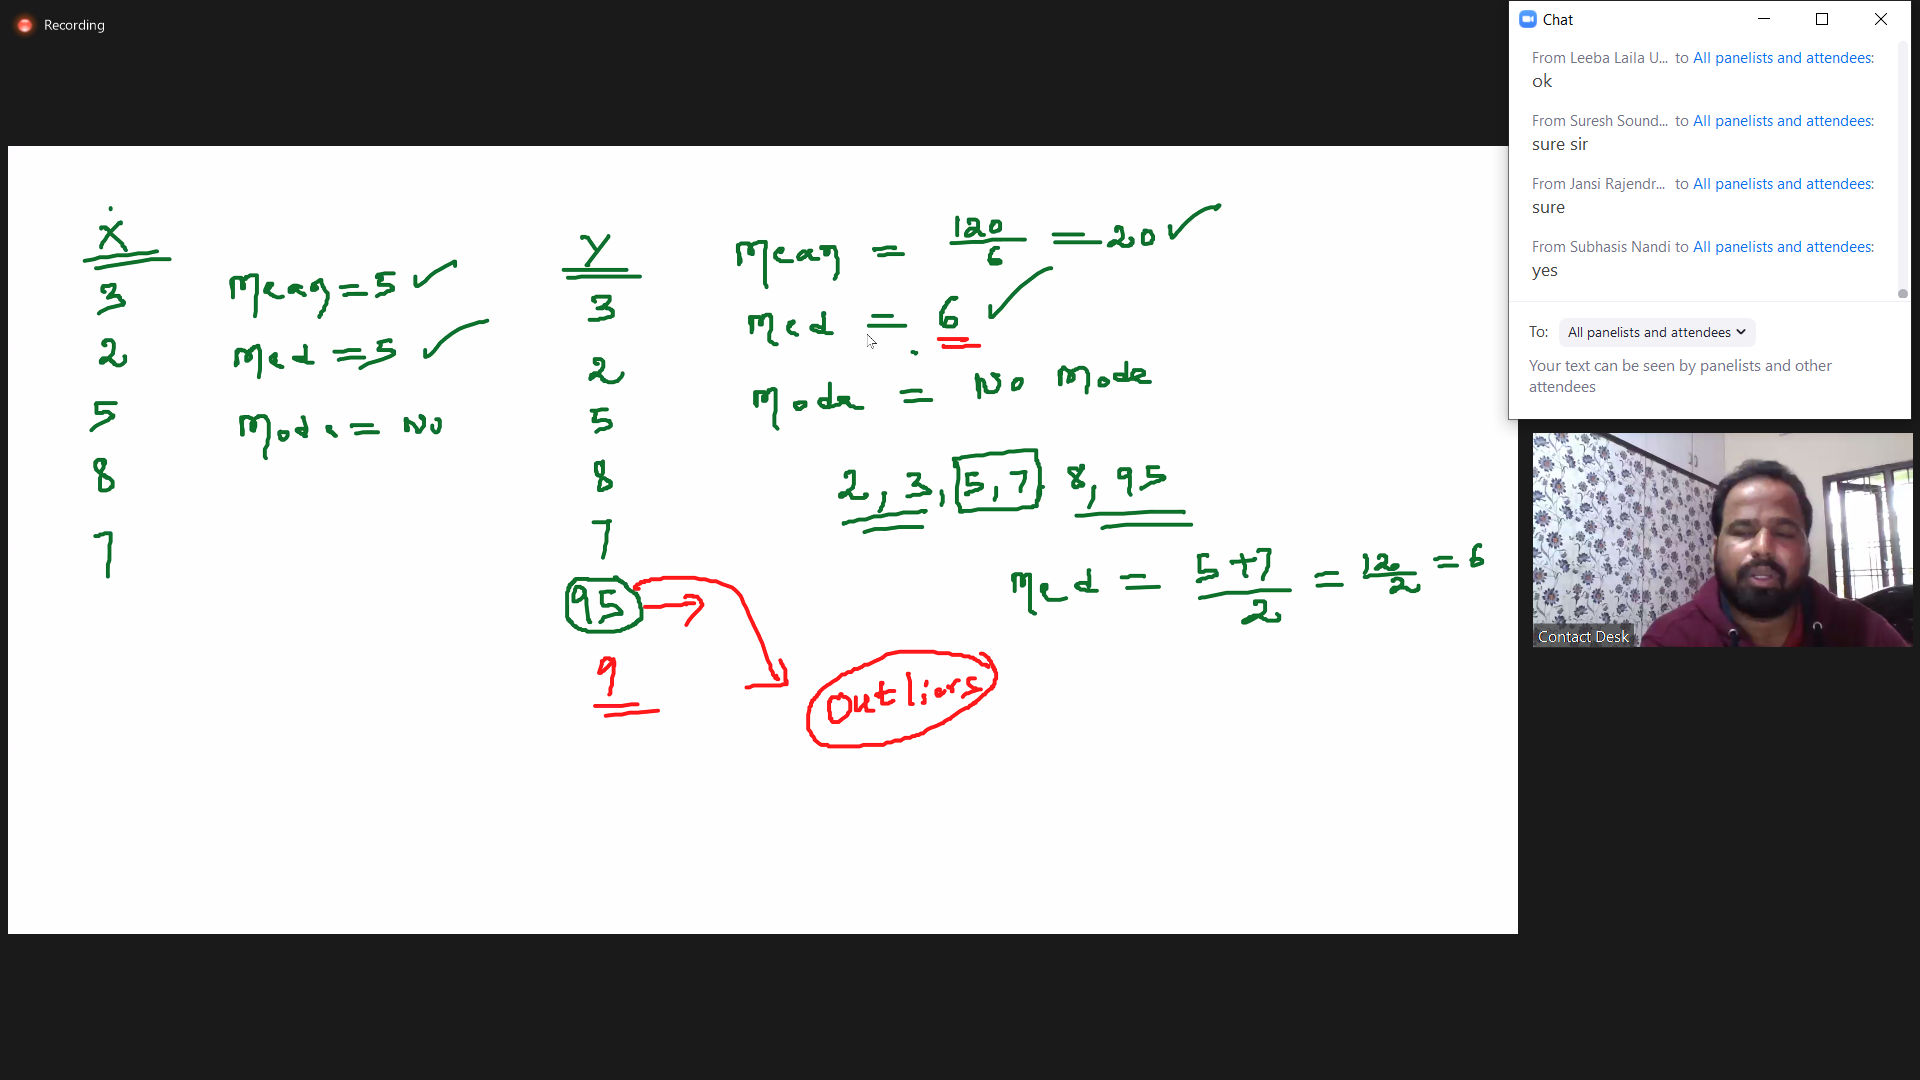 Recording
X
3
2
5
8
7
Mean = 5 ✓
Med = 5 ✓
Mode = No
Y
3
2
5
8
7
95
9
Mean = 120/6 = 20 ✓
Med = 6 ✓
Mode = No Mode
2, 3, 5, 7 8, 95
Med = 5+7/2 = 12/2 = 6
Outliers
Chat
From Leeba Laila U... to All panelists and attendees:
ok
From Suresh Sound... to All panelists and attendees:
sure sir
From Jansi Rajendr... to All panelists and attendees:
sure
From Subhasis Nandi to All panelists and attendees:
yes
To: All panelists and attendees
Your text can be seen by panelists and other
attendees
Contact Desk